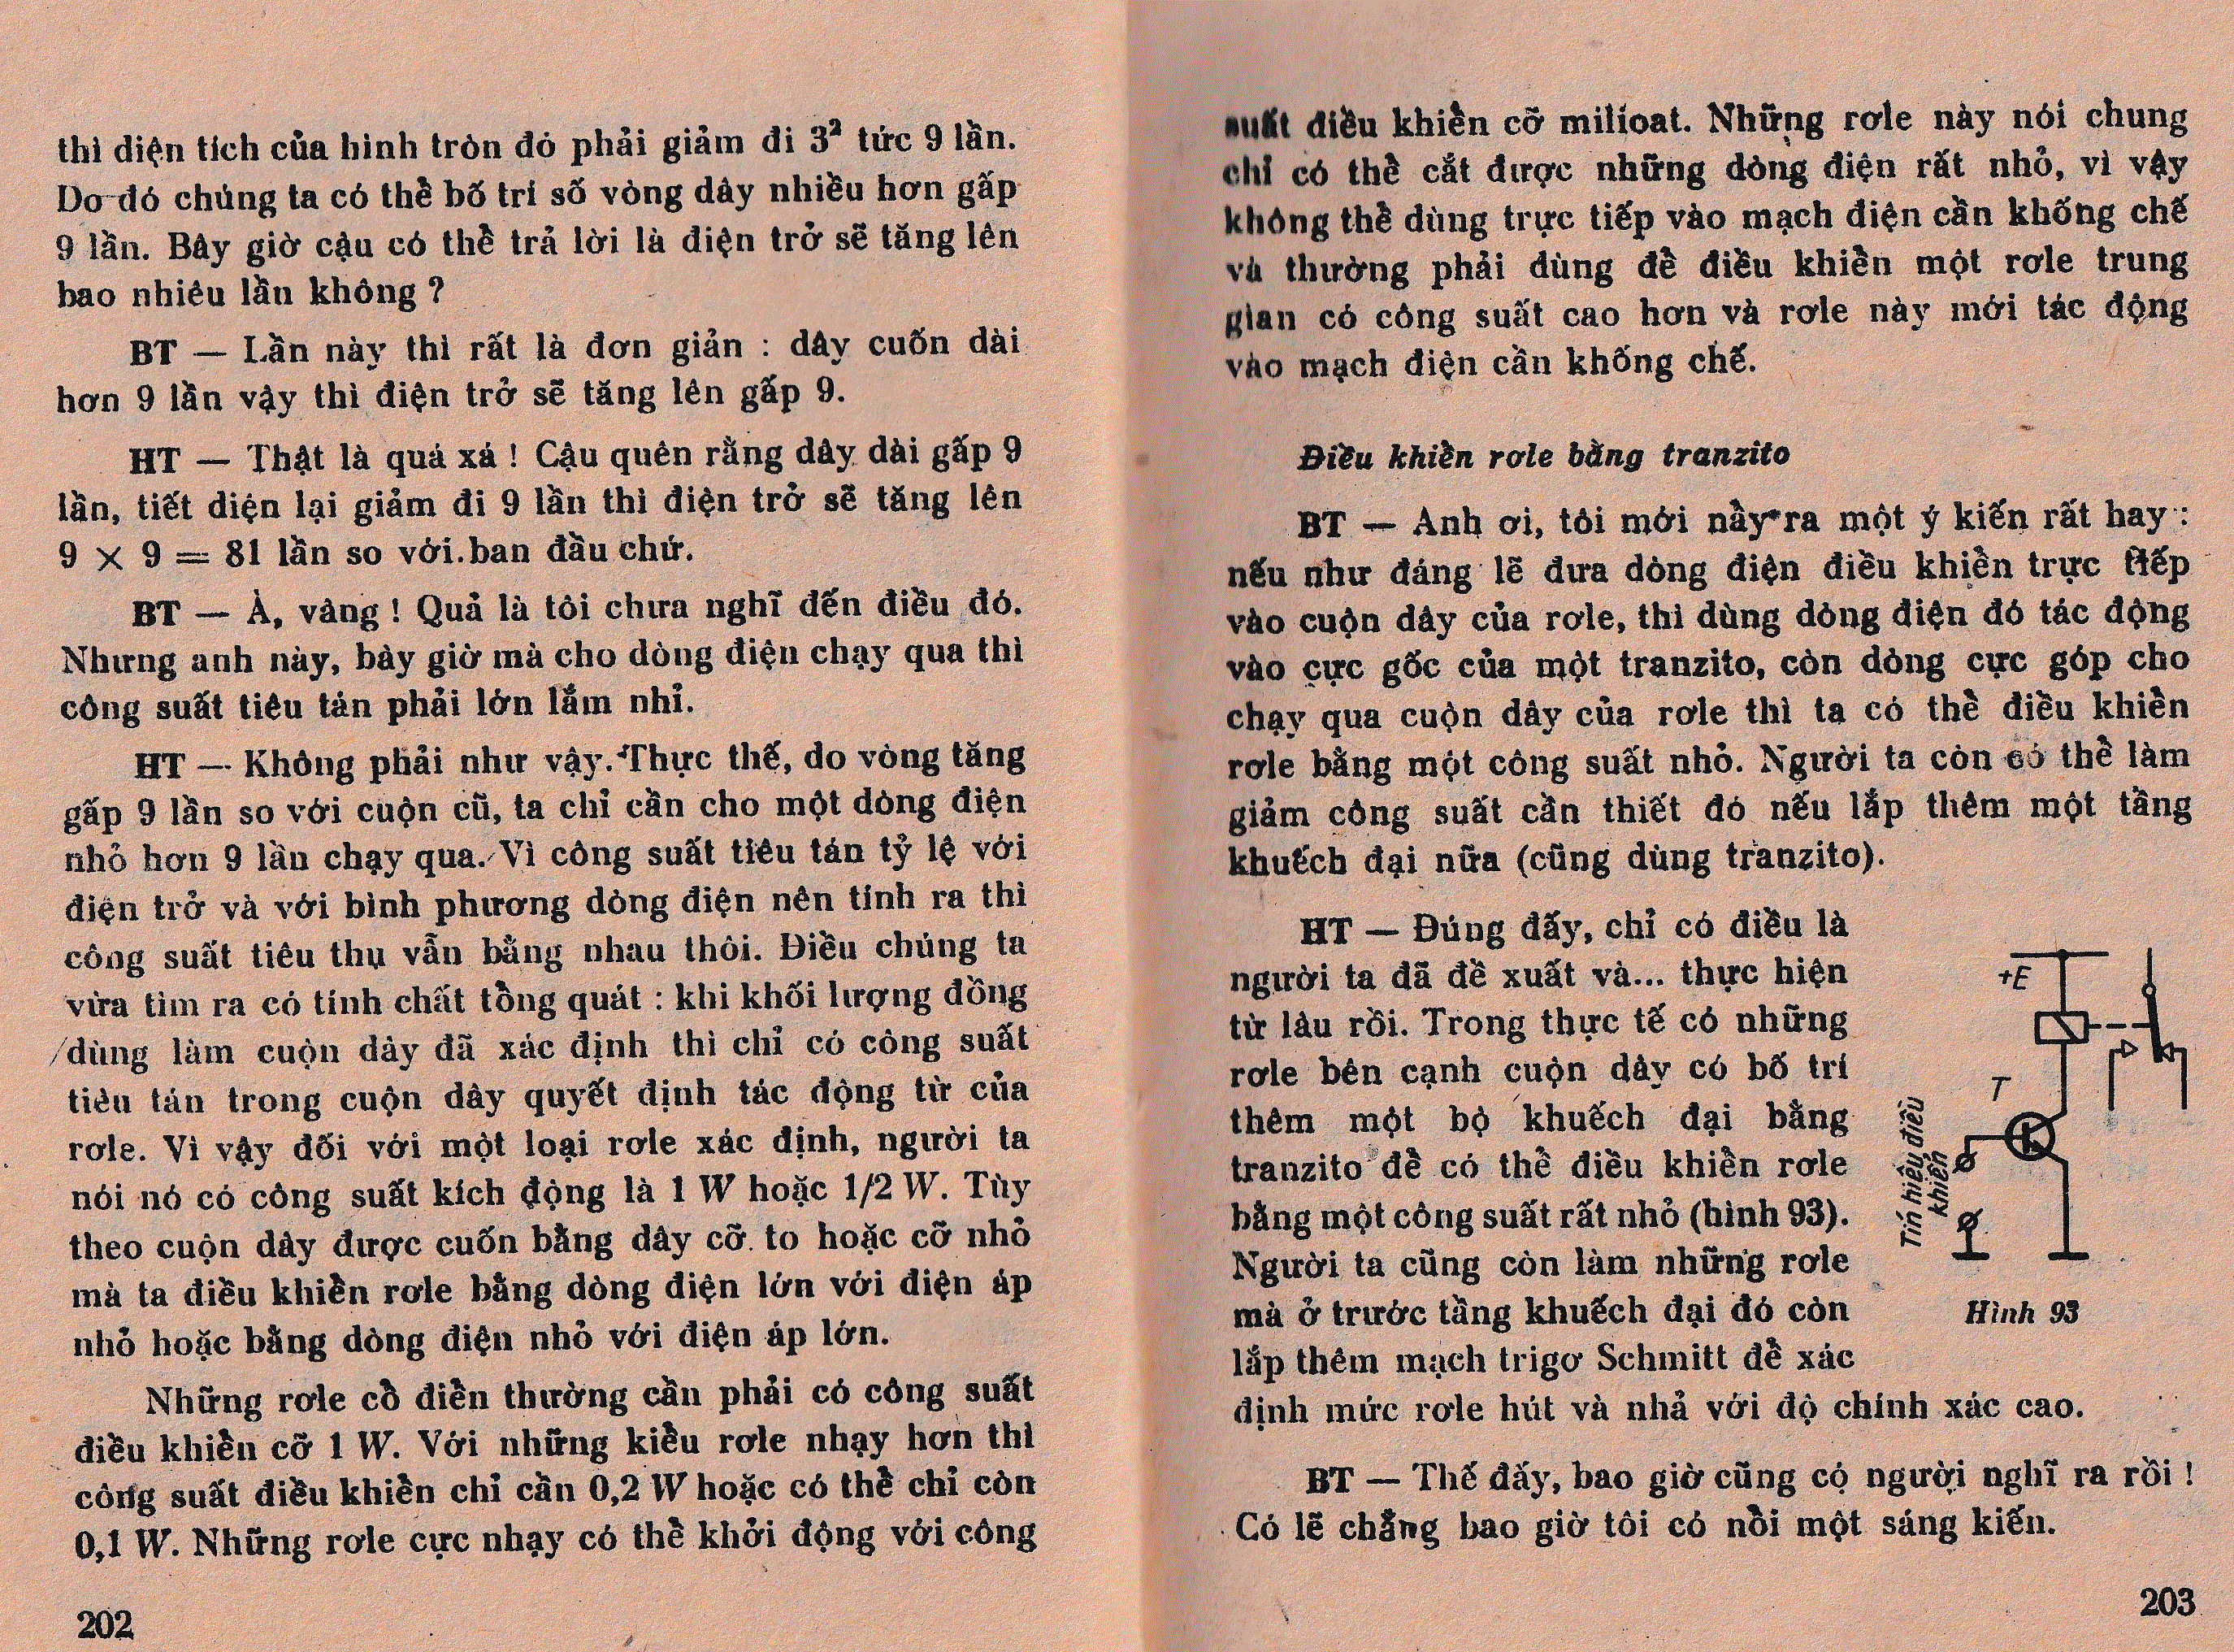 thì diện tích của hình tròn đó phải giảm đi 3² tức 9 lần.
Do đó chúng ta có thể bố trí số vòng dây nhiều hơn gấp
9 lần. Bây giờ cậu có thể trả lời là điện trở sẽ tăng lên
bao nhiêu lần không ?
BT — Lần này thì rất là đơn giản : dây cuốn dài
hơn 9 lần vậy thì điện trở sẽ tăng lên gấp 9.
HT — Thật là quá xá ! Cậu quên rằng dây dài gấp 9
lần, tiết diện lại giảm đi 9 lần thì điện trở sẽ tăng lên
9 × 9 = 81 lần so với ban đầu chứ.
BT — À, vâng ! Quả là tôi chưa nghĩ đến điều đó.
Nhưng anh này, bây giờ mà cho dòng điện chạy qua thì
công suất tiêu tán phải lớn lắm nhỉ.
HT — Không phải như vậy. Thực thế, do vòng tăng
gấp 9 lần so với cuộn cũ, ta chỉ cần cho một dòng điện
nhỏ hơn 9 lần chạy qua. Vì công suất tiêu tán tỷ lệ với
điện trở và với bình phương dòng điện nên tính ra thì
công suất tiêu thụ vẫn bằng nhau thôi. Điều chúng ta
vừa tìm ra có tính chất tổng quát : khi khối lượng đồng
dùng làm cuộn dây đã xác định thì chỉ có công suất
tiêu tán trong cuộn dây quyết định tác động từ của
rơle. Vì vậy đối với một loại rơle xác định, người ta
nói nó có công suất kích động là 1 W hoặc 1/2 W. Tùy
theo cuộn dây được cuốn bằng dây cỡ to hoặc cỡ nhỏ
mà ta điều khiển rơle bằng dòng điện lớn với điện áp
nhỏ hoặc bằng dòng điện nhỏ với điện áp lớn.
Những rơle cổ điển thường cần phải có công suất
điều khiển cỡ 1 W. Với những kiểu rơle nhạy hơn thì
công suất điều khiển chỉ cần 0,2 W hoặc có thể chỉ còn
0,1 W. Những rơle cực nhạy có thể khởi động với công
202
suất điều khiển cỡ milioat. Những rơle này nói chung
chỉ có thể cắt được những dòng điện rất nhỏ, vì vậy
không thể dùng trực tiếp vào mạch điện cần khống chế
và thường phải dùng để điều khiển một rơle trung
gian có công suất cao hơn và rơle này mới tác động
vào mạch điện cần khống chế.
Điều khiển rơle bằng tranzito
BT — Anh ơi, tôi mới nẩy ra một ý kiến rất hay :
nếu như đáng lẽ đưa dòng điện điều khiển trực tiếp
vào cuộn dây của rơle, thì dùng dòng điện đó tác động
vào cực gốc của một tranzito, còn dòng cực góp cho
chạy qua cuộn dây của rơle thì ta có thể điều khiển
rơle bằng một công suất nhỏ. Người ta còn có thể làm
giảm công suất cần thiết đó nếu lắp thêm một tầng
khuếch đại nữa (cũng dùng tranzito).
HT — Đúng đấy, chỉ có điều là
người ta đã đề xuất và... thực hiện
từ lâu rồi. Trong thực tế có những
rơle bên cạnh cuộn dây có bố trí
thêm một bộ khuếch đại bằng
tranzito để có thể điều khiển rơle
bằng một công suất rất nhỏ (hình 93).
Người ta cũng còn làm những rơle
mà ở trước tầng khuếch đại đó còn
lắp thêm mạch trigơ Schmitt để xác
định mức rơle hút và nhả với độ chính xác cao.
+E
T
Tín hiệu điều
khiển
Hình 93
BT — Thế đấy, bao giờ cũng có người nghĩ ra rồi !
Có lẽ chẳng bao giờ tôi có nổi một sáng kiến.
203